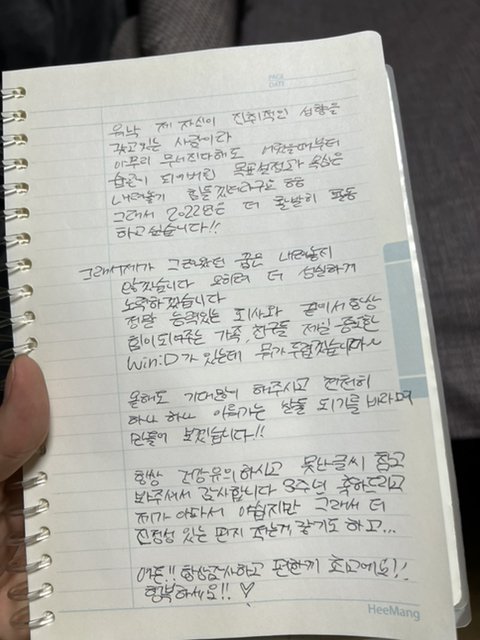 PAGE
DATE
워낙 제 자신이 진취적인 성향을
갖고있는 사람이라
아무리 무너진다해도 어렸을때부터
습관이 되어버린 목표설정과 욕심은
내려놓기 힘들것더라구요 ㅎㅎ
그래서 2022년은 더 활발히 활동
하고싶습니다!!
그래서 제가 그려왔던 꿈은 내려놓지
않겠습니다 오히려 더 성실하게
노력하겠습니다
정말 능력있는 회사와 곁에서 항상
힘이되어주는 가족, 친구들 제일 중요한
WIN:D가 있는데 뭐가 두렵겠습니까~
올해도 기대많이 해주시고 천천히
하나 하나 이뤄가는 날들 되기를 바라며
만들어 보겠습니다!!
항상 건강유의하시고 못난글씨 참고
봐주셔서 감사합니다 3주년 축하드리고
제가 아파서 아쉽지만 그래서 더
진정성 있는 편지 적는거 같기도 하고...
여튼!! 항상감사하고 편한끼 최고에요!!
행복하세요!! ♡
HeeMang